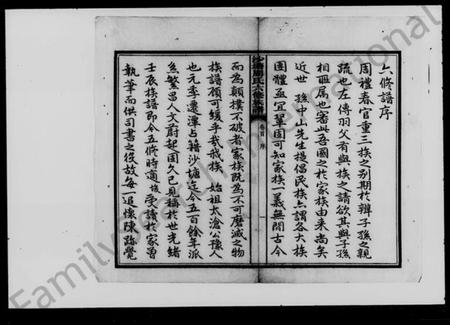 六修譜序
周禮春官重三族之別期於辨子孫之親
疏也左傳羽父有與族之請欲其與子孫
相匝屬也審此吾國之於家族由來尚矣
近世 孫中山先生提倡民族亦謂各大族
團體亟宜鞏固可知家族一義無間古今
沙塘周氏六修族譜
卷首 序
一
而為顛撲不破者家族既為不可磨滅之物
族譜顧可緩乎哉我族 始祖太滄公豫人
也元季遷潭占籍沙塘迄今五百餘年派
系繁昌人文蔚起固久已見稱於世光緒
壬辰族譜即今五修時適援受讀於家君
執筆而供司書之役故每一追懷陳跡覺
Family Search International